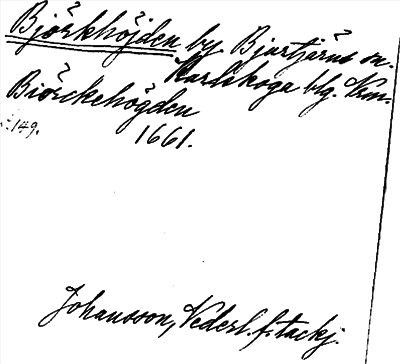 Björkhöjden by Bjurtjärns sn.
Karlskoga blg. Vrm.
Biörckehögden
s. 149.
1661.
Johansson, Vederl. f. tackj.